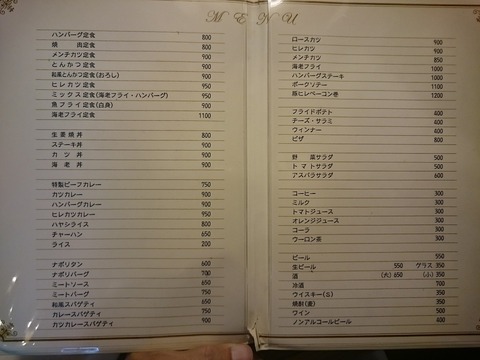 MENU
ハンバーグ定食 800
焼肉定食 800
メンチカツ定食 900
とんかつ定食 900
和風とんかつ定食(おろし) 900
ヒレカツ定食 950
ミックス定食(海老フライ・ハンバーグ) 950
魚フライ定食(白身) 900
海老フライ定食 1100
生姜焼丼 800
ステーキ丼 900
カツ丼 900
海老丼 900
特製ビーフカレー 750
カツカレー 900
ハンバーグカレー 900
ヒレカツカレー 950
ハヤシライス 800
チャーハン 650
ライス 200
ナポリタン 600
ナポリバーグ 700
ミートソース 650
ミートバーグ 750
和風スパゲティ 650
カレースパゲティ 750
カツカレースパゲティ 900
ロースカツ 900
ヒレカツ 900
メンチカツ 850
海老フライ 1000
ハンバーグステーキ 1000
ポークソテー 1100
豚ヒレベーコン巻 1200
フライドポテト 400
チーズ・サラミ 400
ウィンナー 400
ピザ 800
野菜サラダ 500
トマトサラダ 500
アスパラサラダ 600
コーヒー 300
ミルク 300
トマトジュース 300
オレンジジュース 300
コーラ 300
ウーロン茶 300
ビール 550
生ビール 550 グラス 350
酒 (大) 650 (小) 350
冷酒 700
ウイスキー(S) 350
焼酎(麦) 350
ワイン 500
ノンアルコールビール 400